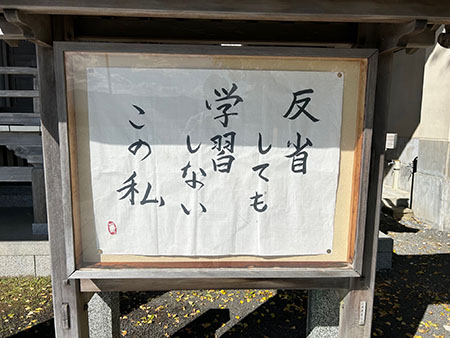 反省
しても
学習
しない
この私